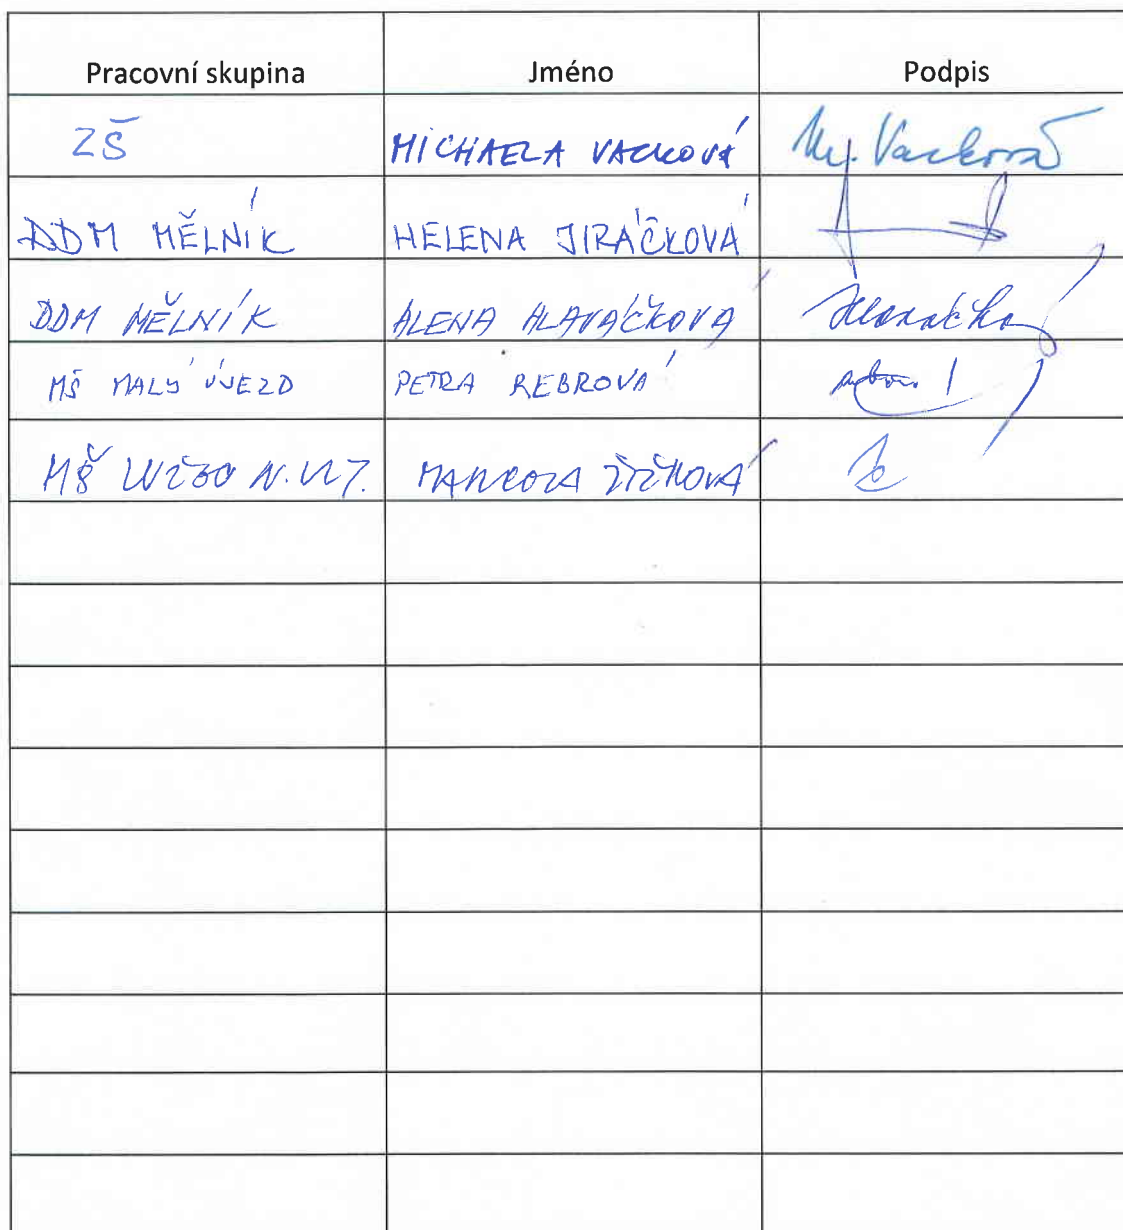 Pracovní skupina Jméno Podpis
ZŠ MICHAELA VACKOVÁ My. Vacková
DDM MĚLNÍK HELENA JIRÁČKOVÁ
DDM MĚLNÍK ALENA HLAVÁČKOVÁ Hlaváčková
MŠ MALÝ ÚJEZD PETRA REBROVÁ
MŠ